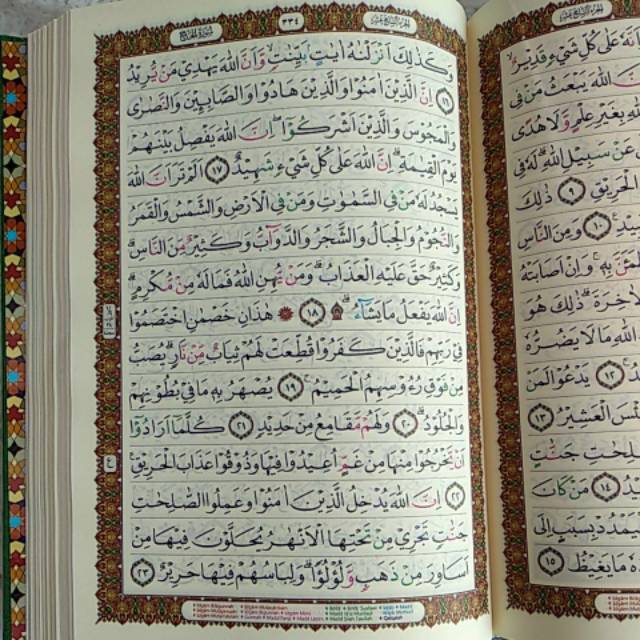 الجزء السابع عشر
٣٣٤
سورة الحج
وَكَذٰلِكَ اَنْزَلْنٰهُ اٰيٰتٍۢ بَيِّنٰتٍۙ وَّاَنَّ اللّٰهَ يَهْدِيْ مَنْ يُّرِيْدُ
﴿١٦﴾ اِنَّ الَّذِيْنَ اٰمَنُوْا وَالَّذِيْنَ هَادُوْا وَالصَّابِـِٕيْنَ وَالنَّصٰرٰى
وَالْمَجُوْسَ وَالَّذِيْنَ اَشْرَكُوْٓا ۖ اِنَّ اللّٰهَ يَفْصِلُ بَيْنَهُمْ
يَوْمَ الْقِيٰمَةِۗ اِنَّ اللّٰهَ عَلٰى كُلِّ شَيْءٍ شَهِيْدٌ ﴿١٧﴾ اَلَمْ تَرَ اَنَّ اللّٰهَ
يَسْجُدُ لَهٗ مَنْ فِى السَّمٰوٰتِ وَمَنْ فِى الْاَرْضِ وَالشَّمْسُ وَالْقَمَرُ
وَالنُّجُوْمُ وَالْجِبَالُ وَالشَّجَرُ وَالدَّوَاۤبُّ وَكَثِيْرٌ مِّنَ النَّاسِۗ
وَكَثِيْرٌ حَقَّ عَلَيْهِ الْعَذَابُۗ وَمَنْ يُّهِنِ اللّٰهُ فَمَا لَهٗ مِنْ مُّكْرِمٍۗ
اِنَّ اللّٰهَ يَفْعَلُ مَا يَشَاۤءُ ۩ۗ ﴿١٨﴾ ۞ هٰذَانِ خَصْمٰنِ اخْتَصَمُوْا
فِيْ رَبِّهِمْ فَالَّذِيْنَ كَفَرُوْا قُطِّعَتْ لَهُمْ ثِيَابٌ مِّنْ نَّارٍۗ يُصَبُّ
مِنْ فَوْقِ رُءُوْسِهِمُ الْحَمِيْمُۚ ﴿١٩﴾ يُصْهَرُ بِهٖ مَا فِيْ بُطُوْنِهِمْ
وَالْجُلُوْدُۗ ﴿٢٠﴾ وَلَهُمْ مَّقَامِعُ مِنْ حَدِيْدٍ ﴿٢١﴾ كُلَّمَآ اَرَادُوْٓا
اَنْ يَّخْرُجُوْا مِنْهَا مِنْ غَمٍّ اُعِيْدُوْا فِيْهَا وَذُوْقُوْا عَذَابَ الْحَرِيْقِ
﴿٢٢﴾ اِنَّ اللّٰهَ يُدْخِلُ الَّذِيْنَ اٰمَنُوْا وَعَمِلُوا الصّٰلِحٰتِ
جَنّٰتٍ تَجْرِيْ مِنْ تَحْتِهَا الْاَنْهٰرُ يُحَلَّوْنَ فِيْهَا مِنْ
اَسَاوِرَ مِنْ ذَهَبٍ وَّلُؤْلُؤًاۗ وَلِبَاسُهُمْ فِيْهَا حَرِيْرٌ ﴿٢٣﴾
الجزء السابع عشر
عَلٰى كُلِّ شَيْءٍ قَدِيْرٌ
اللّٰهَ يَبْعَثُ مَنْ فِى
بِغَيْرِ عِلْمٍ وَّلَا هُدًى
عَنْ سَبِيْلِ اللّٰهِۗ لَهٗ فِى
الْحَرِيْقِ ﴿٩﴾ ذٰلِكَ
﴿١٠﴾ وَمِنَ النَّاسِ
بِهٖۚ وَاِنْ اَصَابَتْهُ
ذٰلِكَ هُوَ
اللّٰهِ مَا لَا يَضُرُّهٗ
﴿١٢﴾ يَدْعُوْا لَمَنْ
الْعَشِيْرُ ﴿١٣﴾
جَنّٰتٍ
﴿١٤﴾ مَنْ كَانَ
بِسَبَبٍ اِلَى
مَا يَغِيْظُ ﴿١٥﴾